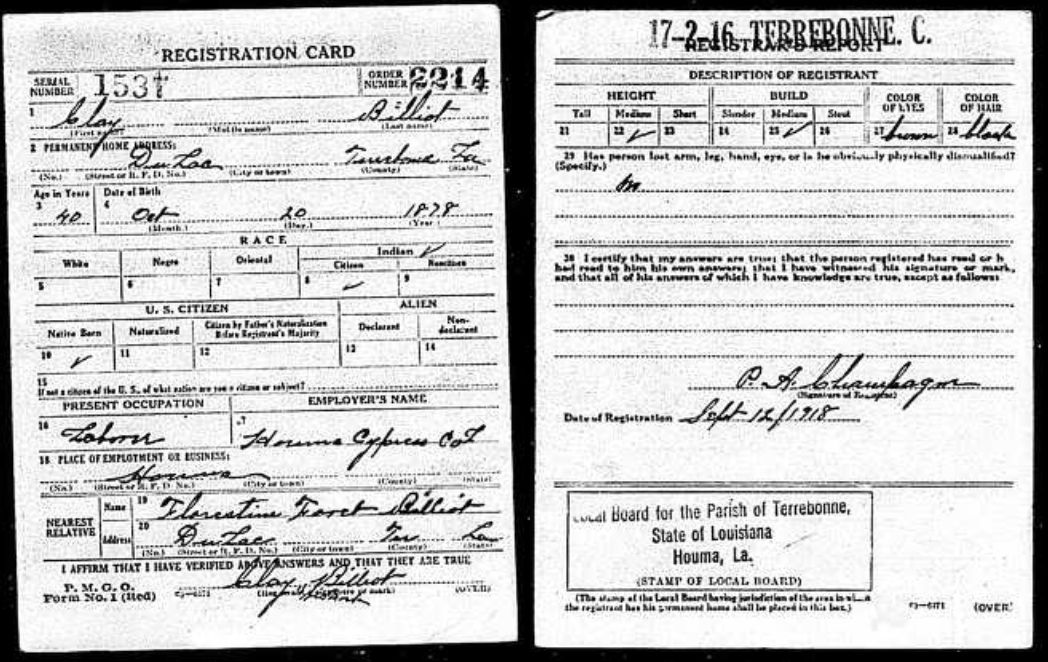 REGISTRATION CARD
SERIAL NUMBER 1537 ORDER NUMBER 2214
1 Clay Billiot
(First name) (Middle name) (Last name)
2 PERMANENT HOME ADDRESS:
Du Lac Terrebonne La
(No.) (Street or R. F. D. No.) (City or town) (County) (State)
Age in Years Date of Birth
3 40 4 Oct 20 1878
(Month.) (Day.) (Year.)
RACE
White Negro Oriental Indian ✓
Citizen Noncitizen
5 6 7 8 ✓ 9
U. S. CITIZEN ALIEN
Native Born Naturalized Citizen by Father's Naturalization Before Registrant's Majority Declarant Non-declarant
10 ✓ 11 12 13 14
15
If not a citizen of the U. S., of what nation are you a citizen or subject?
PRESENT OCCUPATION EMPLOYER'S NAME
16 Laborer 17 Houma Cypress Co
18 PLACE OF EMPLOYMENT OR BUSINESS:
Houma
(No.) (Street or R. F. D. No.) (City or town) (County) (State)
NEAREST RELATIVE Name 19 Florestine Foret Billiot
Address 20 Du Lac Ter La
(No.) (Street or R. F. D. No.) (City or town) (County) (State)
I AFFIRM THAT I HAVE VERIFIED ABOVE ANSWERS AND THAT THEY ARE TRUE
P. M. G. O.
Form No. 1 (Red) Clay Billiot (OVER)
17-2-16 TERREBONNE. C.
REGISTRAR'S REPORT
DESCRIPTION OF REGISTRANT
HEIGHT BUILD COLOR OF EYES COLOR OF HAIR
Tall Medium Short Slender Medium Stout
21 22 ✓ 23 24 25 ✓ 26 27 brown 28 black
29 Has person lost arm, leg, hand, eye, or is he obviously physically disqualified?
(Specify.)
30 I certify that my answers are true; that the person registered has read or h
had read to him his own answers; that I have witnessed his signature or mark,
and that all of his answers of which I have knowledge are true, except as follows:
P. A. Champagne
(Signature of Registrar)
Date of Registration Sept 12/1918
Local Board for the Parish of Terrebonne,
State of Louisiana
Houma, La.
(STAMP OF LOCAL BOARD)
(The stamp of the Local Board having jurisdiction of the area in which
the registrant has his permanent home shall be placed in this box.)
03—6171 (OVER)